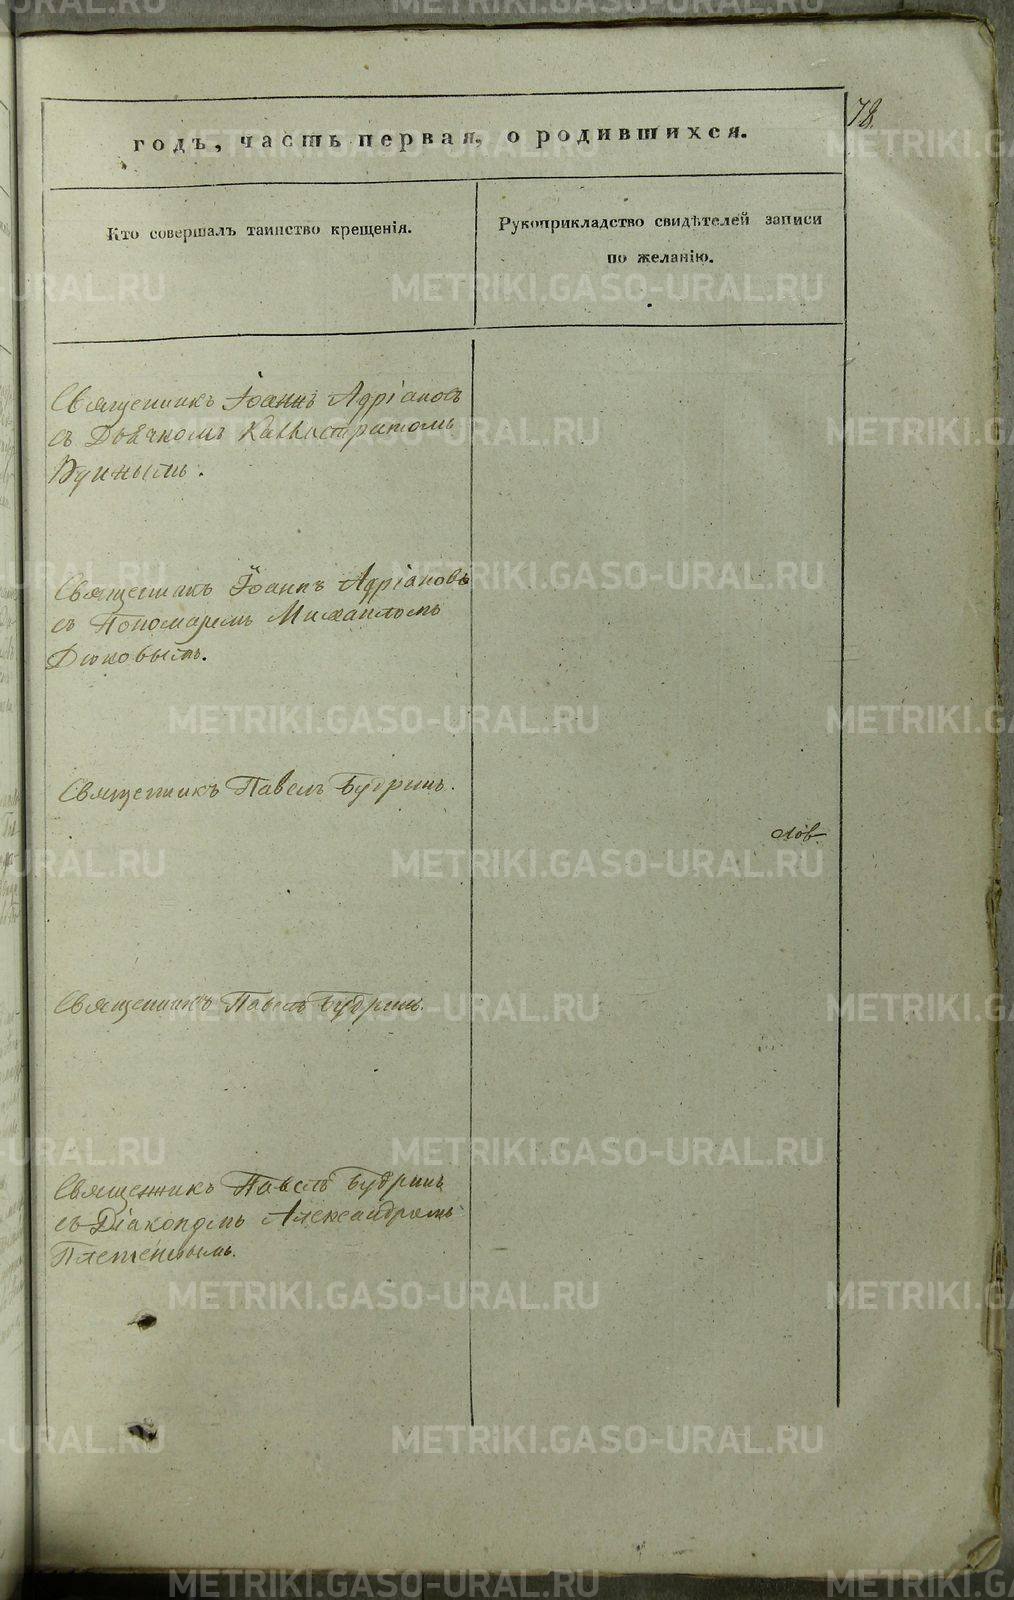 78.
годъ, часть первая, о родившихся.
Кто совершалъ таинство крещенія.
Рукоприкладство свидѣтелей записи
по желанію.
Священникъ Іоаннъ Адріановъ
съ Дьячкомъ Каллистратомъ
Священникъ Іоаннъ Адріановъ
съ Пономаремъ Михаиломъ
Дюковымъ.
Священникъ Павелъ Будринъ.
Священникъ Павелъ Будринъ.
Священникъ Павелъ Будринъ
съ Діакономъ Александромъ
Плетеневымъ.
METRIKI.GASO-URAL.RU